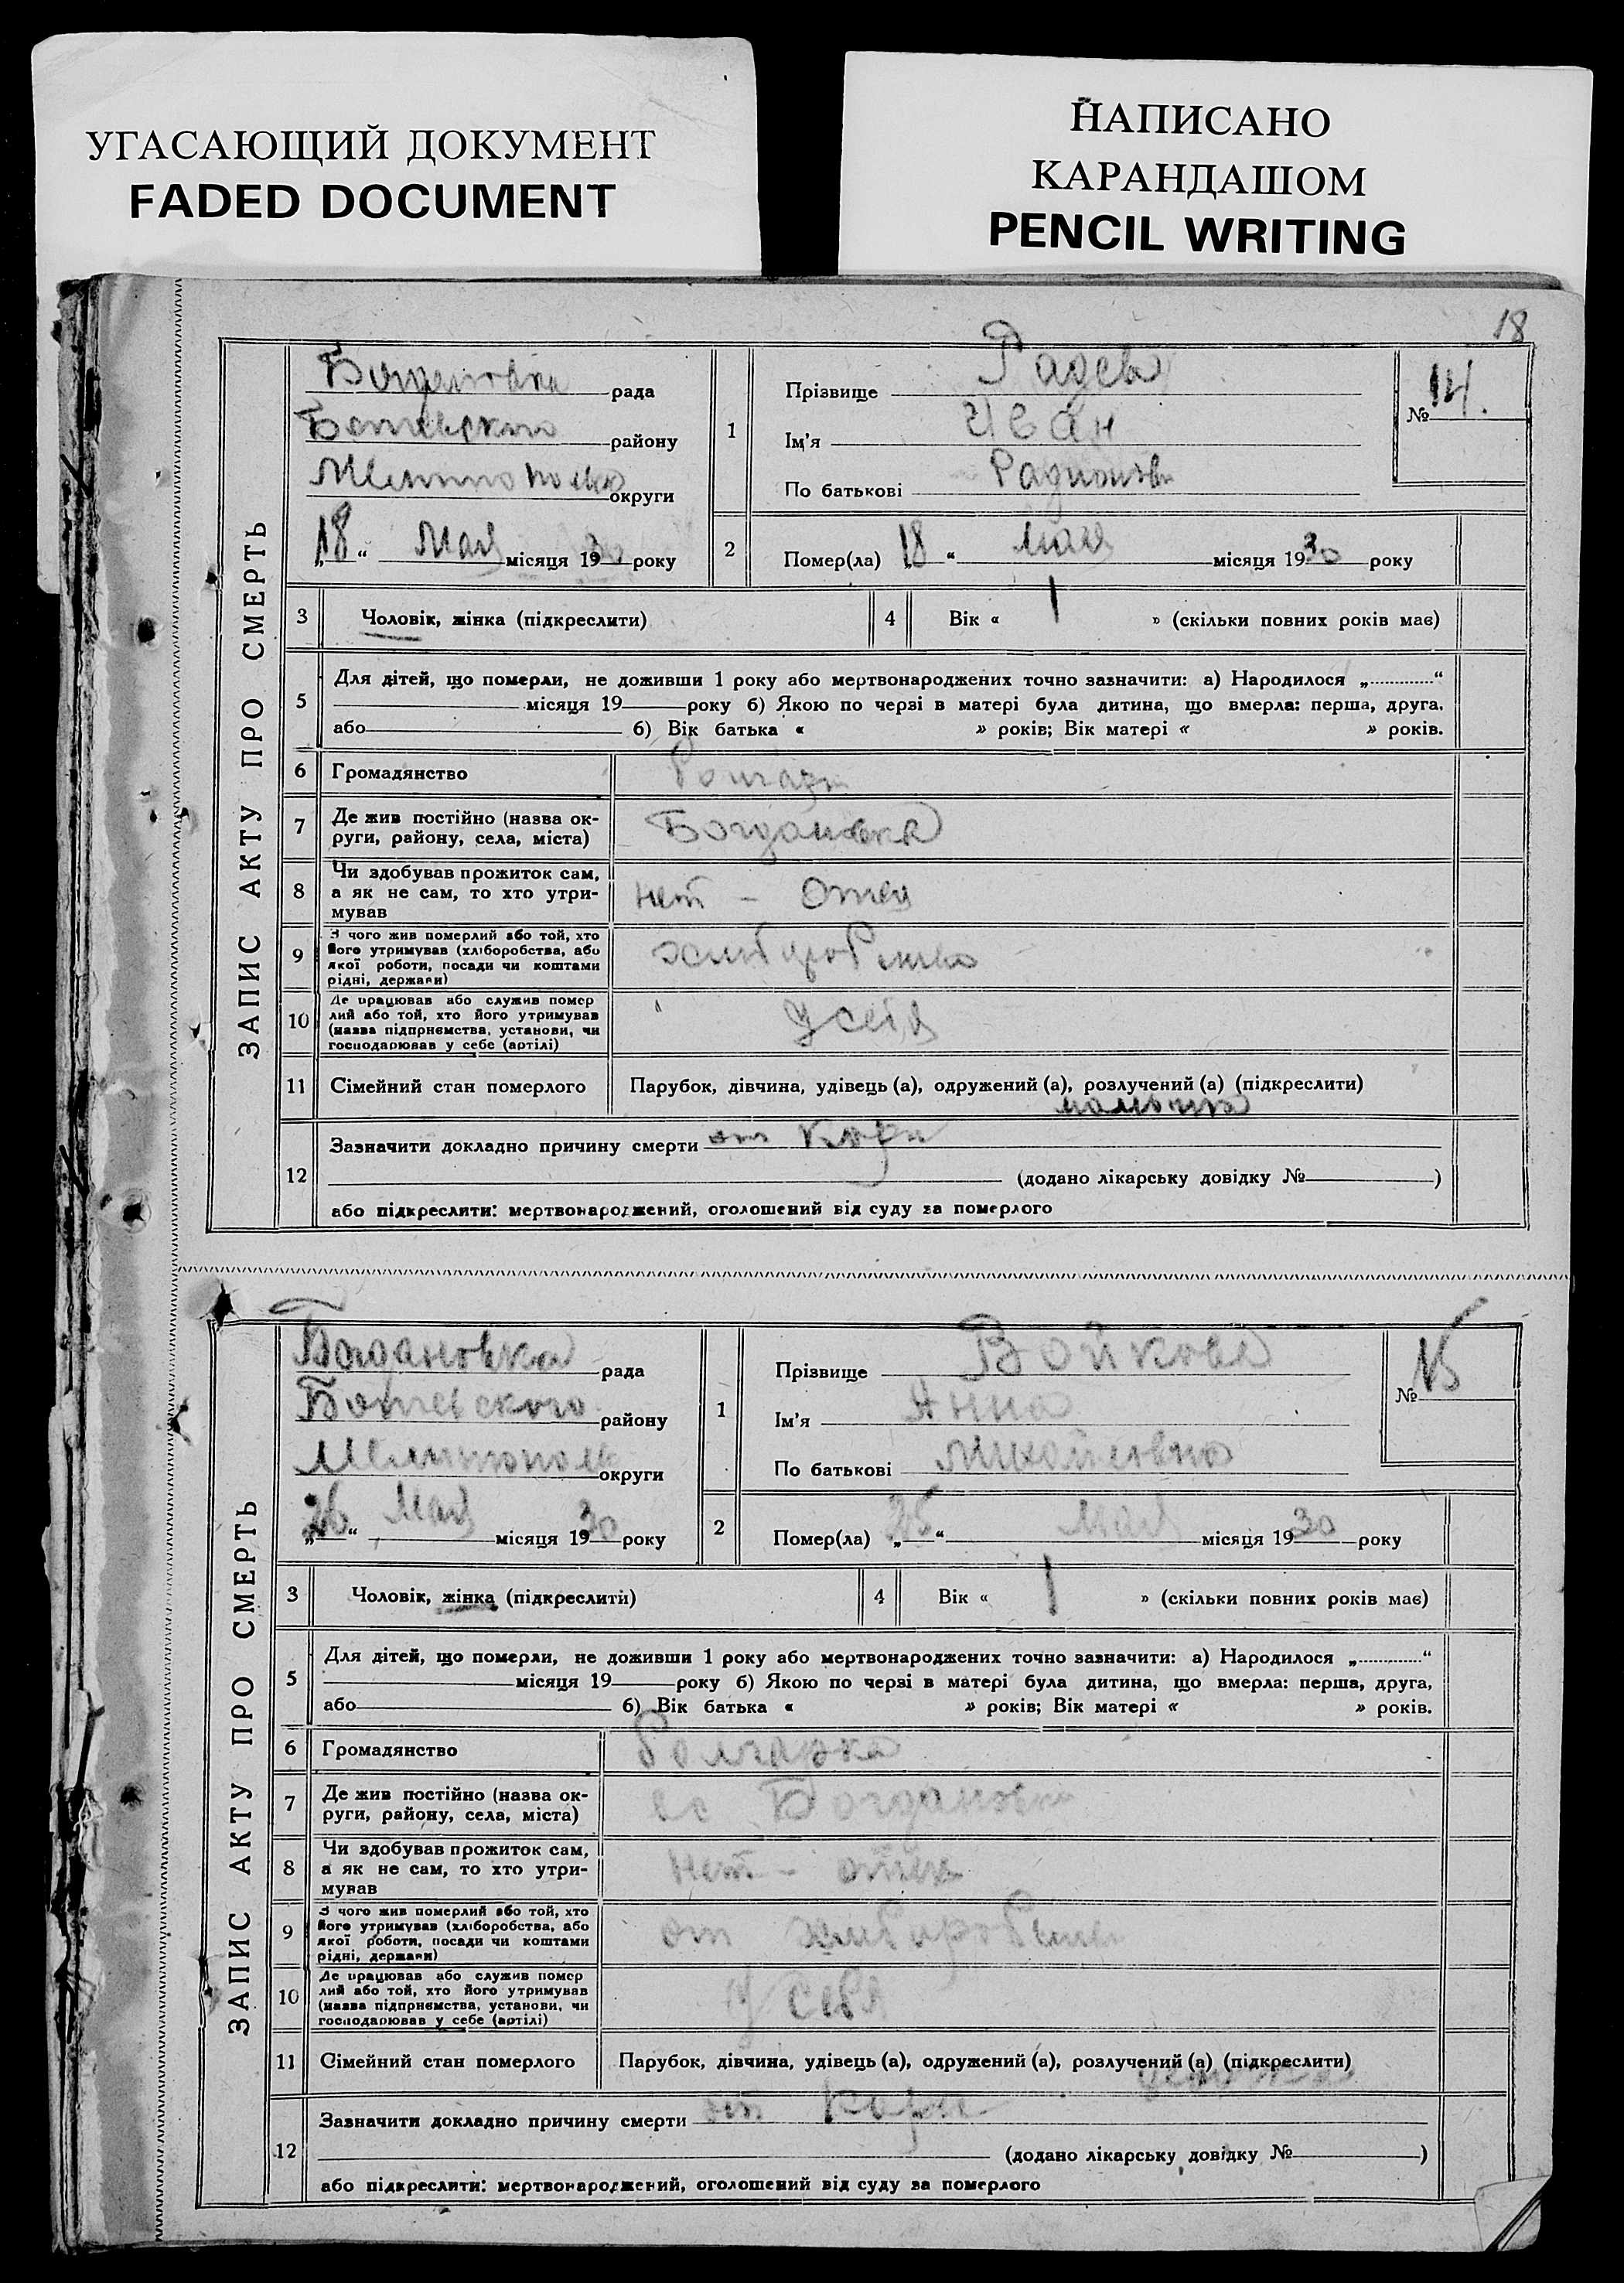 УГАСАЮЩИЙ ДОКУМЕНТ
FADED DOCUMENT
НАПИСАНО
КАРАНДАШОМ
PENCIL WRITING
18
ЗАПИС АКТУ ПРО СМЕРТЬ
Богдановка рада
Ботевского району
округи
„18“ Мая місяця 1930 року
1
Прізвище Радев
Ім'я Иван
По батькові
№ 14.
2
Помер(ла) „18“ мая місяця 1930 року
3 Чоловік, жінка (підкреслити)
4 Вік « 1 » (скільки повних років має)
5
Для дітей, що померли, не доживши 1 року або мертвонароджених точно зазначити: а) Народилося „............“
місяця 19 року б) Якою по черзі в матері була дитина, що вмерла: перша, друга,
або б) Вік батька « » років; Вік матері « » років.
6 Громадянство
7 Де жив постійно (назва ок-
руги, району, села, міста)
Богдановка
8 Чи здобував прожиток сам,
а як не сам, то хто утри-
мував
нет - отец
9 З чого жив померлий або той, хто
його утримував (хліборобства, або
якої роботи, посади чи коштами
рідні, держави)
10 Де працював або служив помер
лий або той, хто його утримував
(назва підприємства, установи, чи
господарював у себе (артілі)
У себя
11 Сімейний стан померлого Парубок, дівчина, удівець (а), одружений (а), розлучений (а) (підкреслити)
12
Зазначити докладно причину смерти от Кори
(додано лікарську довідку № )
або підкреслити: мертвонароджений, оголошений від суду за померлого
ЗАПИС АКТУ ПРО СМЕРТЬ
Богдановка рада
Ботевского району
Мелитополь округи
„26“ Мая місяця 1930 року
1
Прізвище Войкова
Ім'я Анна
По батькові Михайловна
№ 15
2
Помер(ла) „25“ мая місяця 1930 року
3 Чоловік, жінка (підкреслити)
4 Вік « 1 » (скільки повних років має)
5
Для дітей, що померли, не доживши 1 року або мертвонароджених точно зазначити: а) Народилося „............“
місяця 19 року б) Якою по черзі в матері була дитина, що вмерла: перша, друга,
або б) Вік батька « » років; Вік матері « » років.
6 Громадянство Болгарка
7 Де жив постійно (назва ок-
руги, району, села, міста)
Богдановка
8 Чи здобував прожиток сам,
а як не сам, то хто утри-
мував
нет - отец
9 З чого жив померлий або той, хто
його утримував (хліборобства, або
якої роботи, посади чи коштами
рідні, держави)
от
10 Де працював або служив помер
лий або той, хто його утримував
(назва підприємства, установи, чи
господарював у себе (артілі)
У себя
11 Сімейний стан померлого Парубок, дівчина, удівець (а), одружений (а), розлучений (а) (підкреслити)
12
Зазначити докладно причину смерти от Кори
(додано лікарську довідку № )
або підкреслити: мертвонароджений, оголошений від суду за померлого